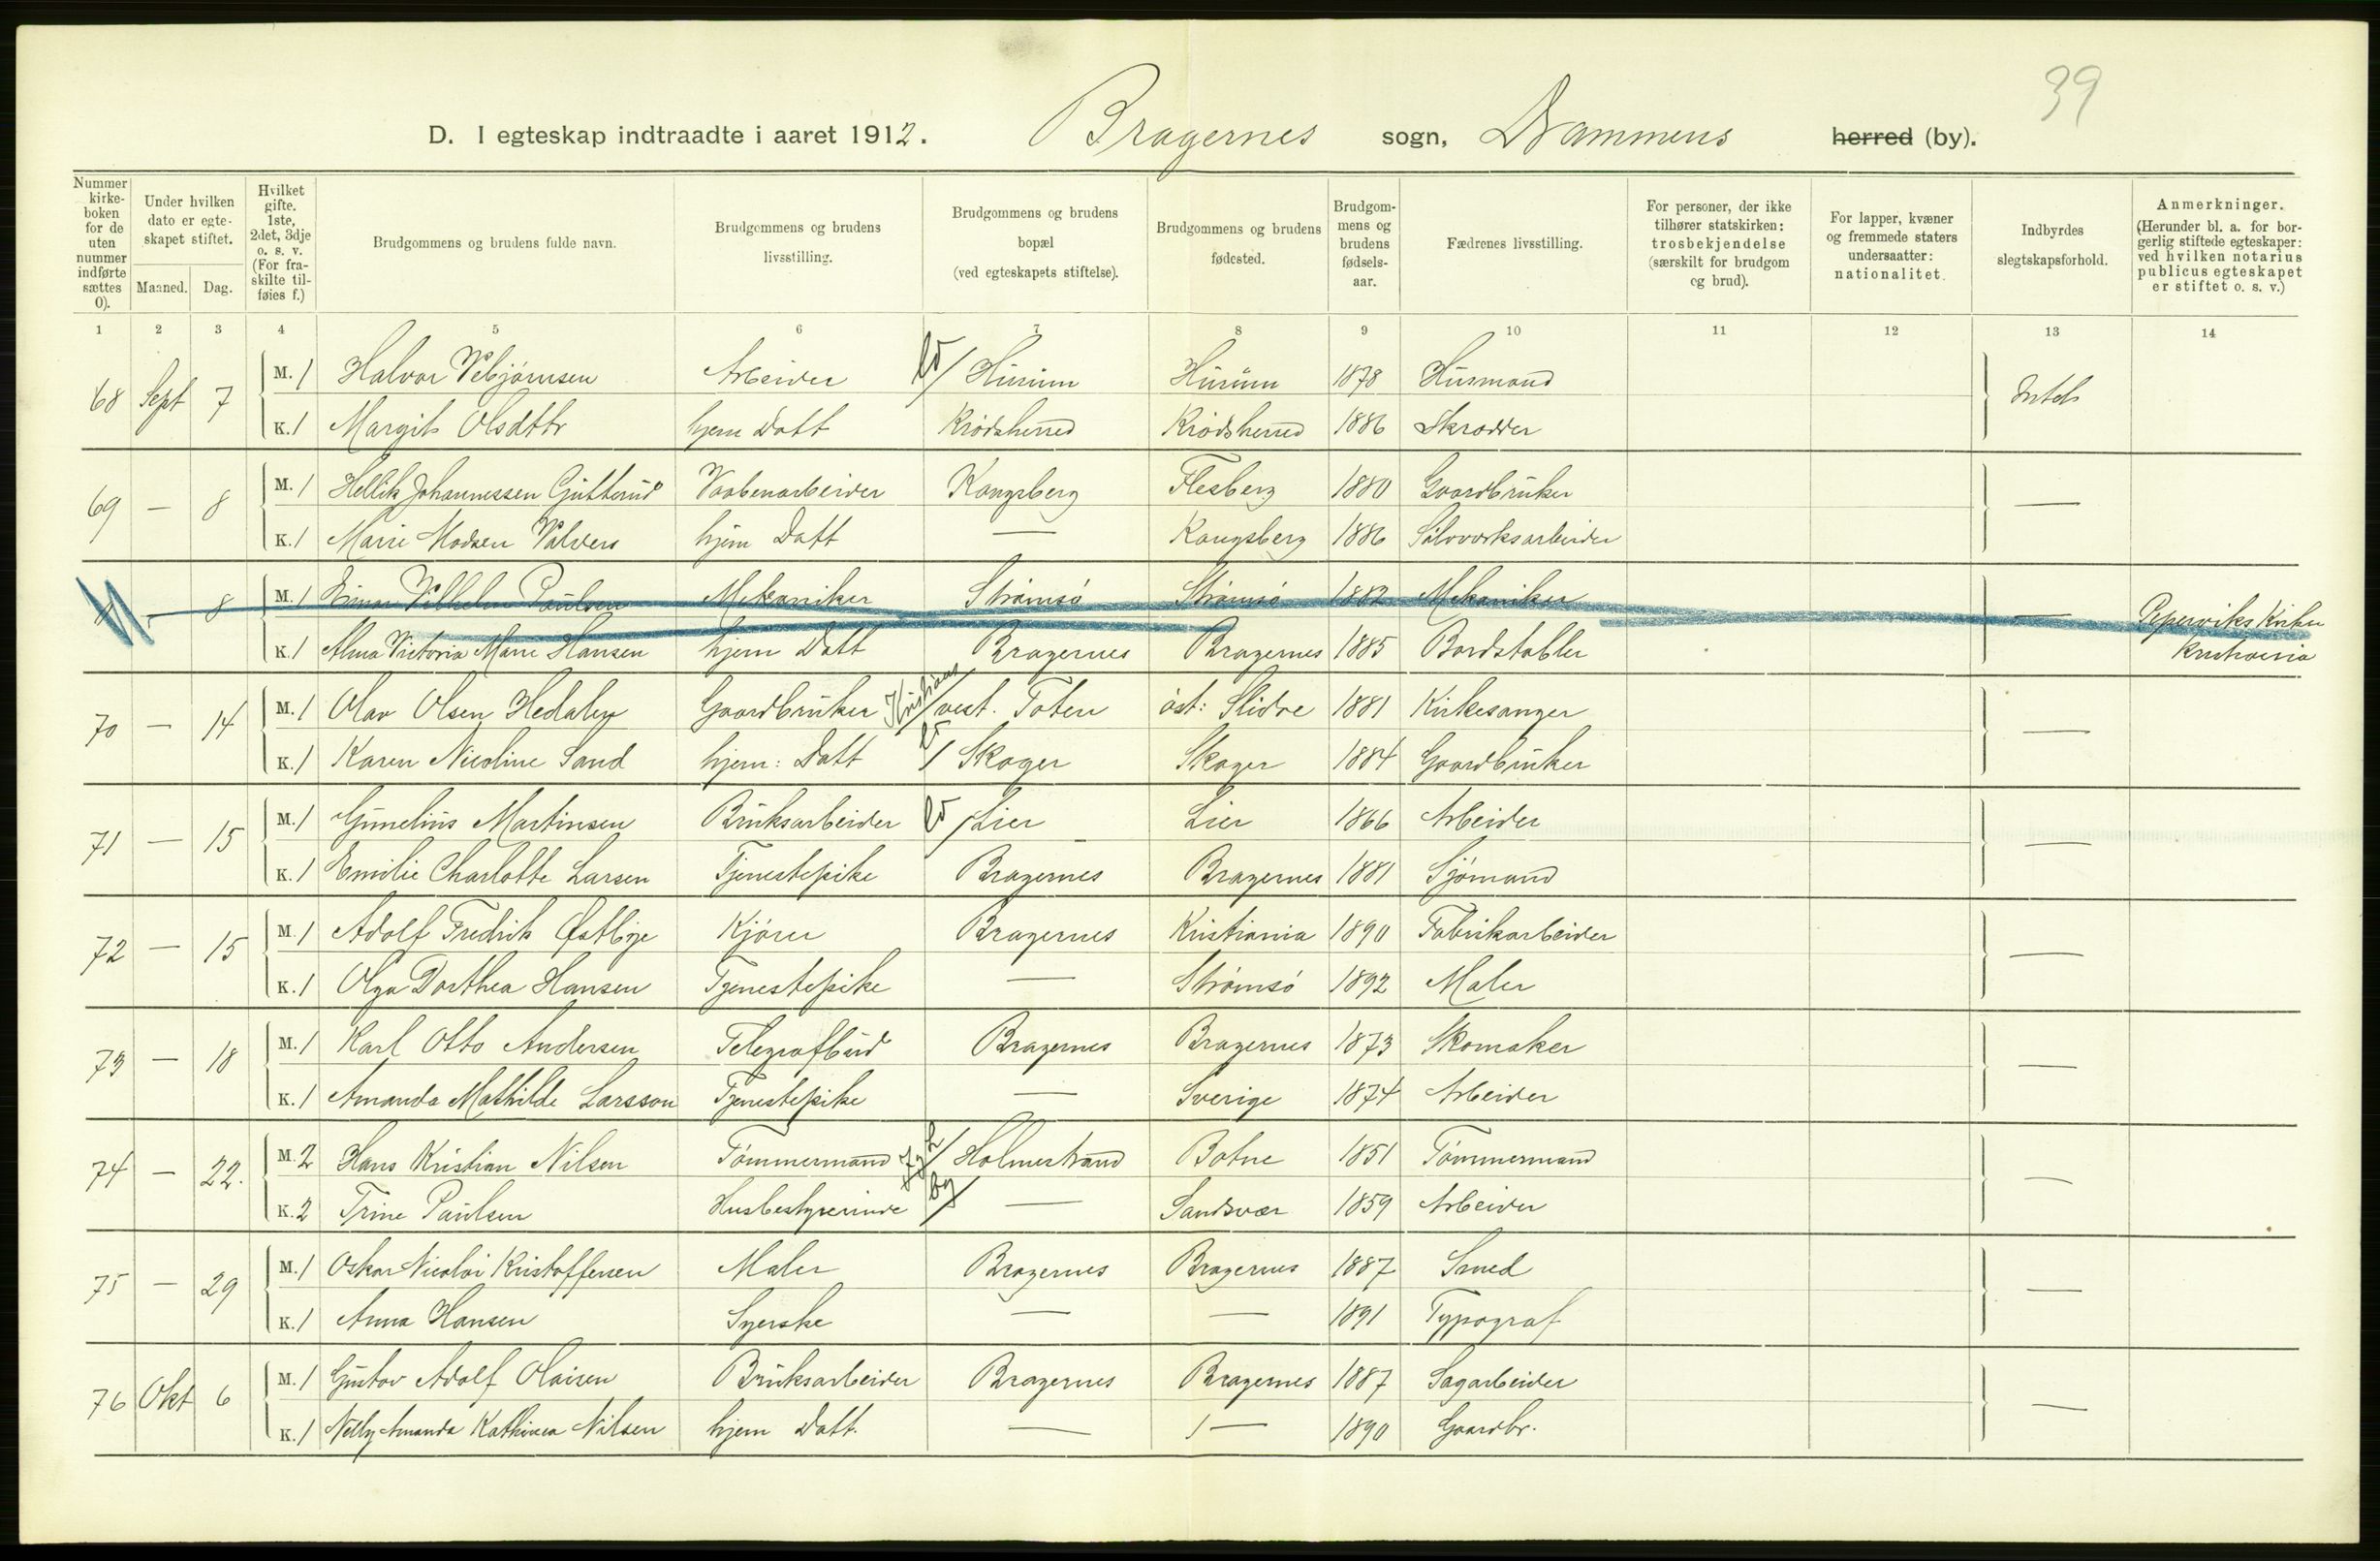 39
D. I egteskap indtraadte i aaret 1912. Bragernes sogn, Drammens herred (by).
Nummer kirke-boken for de uten nummer indførte sættes 0).
Under hvilken dato er egte-skapet stiftet.
Maaned. Dag.
Hvilket gifte. 1ste, 2det, 3dje o. s. v. (For fra-skilte til-føies f.)
Brudgommens og brudens fulde navn.
Brudgommens og brudens livsstilling.
Brudgommens og brudens bopæl (ved egteskapets stiftelse).
Brudgommens og brudens fødested.
Brudgom-mens og brudens fødsels-aar.
Fædrenes livsstilling.
For personer, der ikke tilhører statskirken: trosbekjendelse (særskilt for brudgom og brud).
For lapper, kvæner og fremmede staters undersaatter: nationalitet.
Indbyrdes slegtskapsforhold.
Anmerkninger. (Herunder bl. a. for bor-gerlig stiftede egteskaper: ved hvilken notarius publicus egteskapet er stiftet o. s. v.)
1 2 3 4 5 6 7 8 9 10 11 12 13 14
68 Sept 7 M. 1 Halvor Vebjørnsen Arbeider / Hurum Hurum 1878 Husmand Intet
K. 1 Margit Olsdttr hjem Datt Krødsherred Krødsherred 1886 Skrædder
69 — 8 M. 1 Hellik Johannessen Gutterud Vaabenarbeider Kongsberg Flesberg 1880 Gaardbruker —
K. 1 Marie Madsen Valvers hjem Datt — Kongsberg 1886 Sølvverksarbeider
— 8 M. 1 Einar Vilhelm Paulsen Mekaniker Strømsø Strømsø 1882 Mekaniker — Peperviks Kirke
K. 1 Alma Victoria Marie Hansen hjem Datt Bragernes Bragernes 1885 Bordstabler Kristiania
70 — 14 M. 1 Olav Olsen Hedalen Gaardbruker Kristians / vest. Toten øst: Slidre 1881 Kirkesanger —
K. 1 Karen Nicoline Sand hjem: Datt / Skoger Skoger 1884 Gaardbruker
71 — 15 M. 1 Gunelius Martinsen Bruksarbeider / Lier Lier 1866 Arbeider —
K. 1 Emilie Charlotte Larsen Tjenestepike Bragernes Bragernes 1881 Sjømand
72 — 15 M. 1 Adolf Fredrik Østbye Kjører Bragernes Kristiania 1890 Fabrikarbeider —
K. 1 Olga Dorthea Hansen Tjenestepike — Strømsø 1892 Maler
73 — 18 M. 1 Karl Otto Andersen Telegrafbud Bragernes Bragernes 1873 Skomaker —
K. 1 Amanda Mathilde Larsson Tjenestepike — Sverige 1874 Arbeider
74 — 22. M. 2 Hans Kristian Nilsen Tømmermand / Holmestrand Botne 1851 Tømmermand —
K. 2 Trine Paulsen Husbestyrerinde by / — Sandsvær 1859 Arbeider
75 — 29 M. 1 Oskar Nicolai Kristoffersen Maler Bragernes Bragernes 1887 Smed —
K. 1 Anna Hansen Syerske — — 1891 Typograf
76 Okt 6 M. 1 Gustav Adolf Olaisen Bruksarbeider Bragernes Bragernes 1887 Sagarbeider —
K. 1 Nelly Amanda Kathinca Nilsen hjem Datt. — — 1890 Gaardbr.